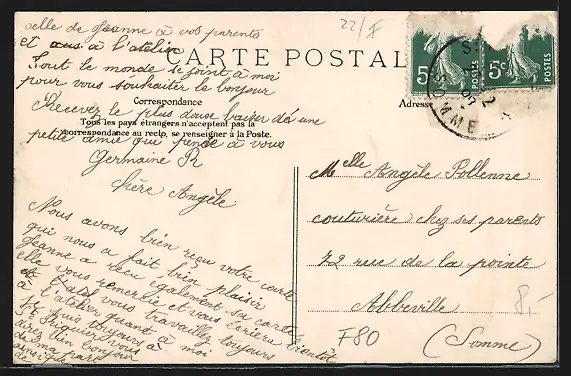 celle de Jeanne à vos parents
et à l'atelier
Tout le monde se joint à moi
pour vous souhaiter le bonjour
Recevez le plus doux baiser d'une
petite amie qui pense à vous
Germaine R
22/F
CARTE POSTALE
Correspondance
Tous les pays étrangers n'acceptent pas la
correspondance au recto, se renseigner à la Poste.
Adresse
5c
POSTES
5c
POSTES
SOMME
Chère Angèle
Nous avons bien reçu votre carte
qui nous a fait bien plaisir
Jeanne a reçu également sa carte
elle vous remercie et vous écrira bientôt
et vous travaillez toujours
à l'atelier quant à moi
je suis toujours
vous
direz bien bonjour
de ma part
ainsi que
Melle Angèle Pollenne
couturière chez ses parents
72 rue de la pointe
Abbeville
(Somme)
F80
8,-